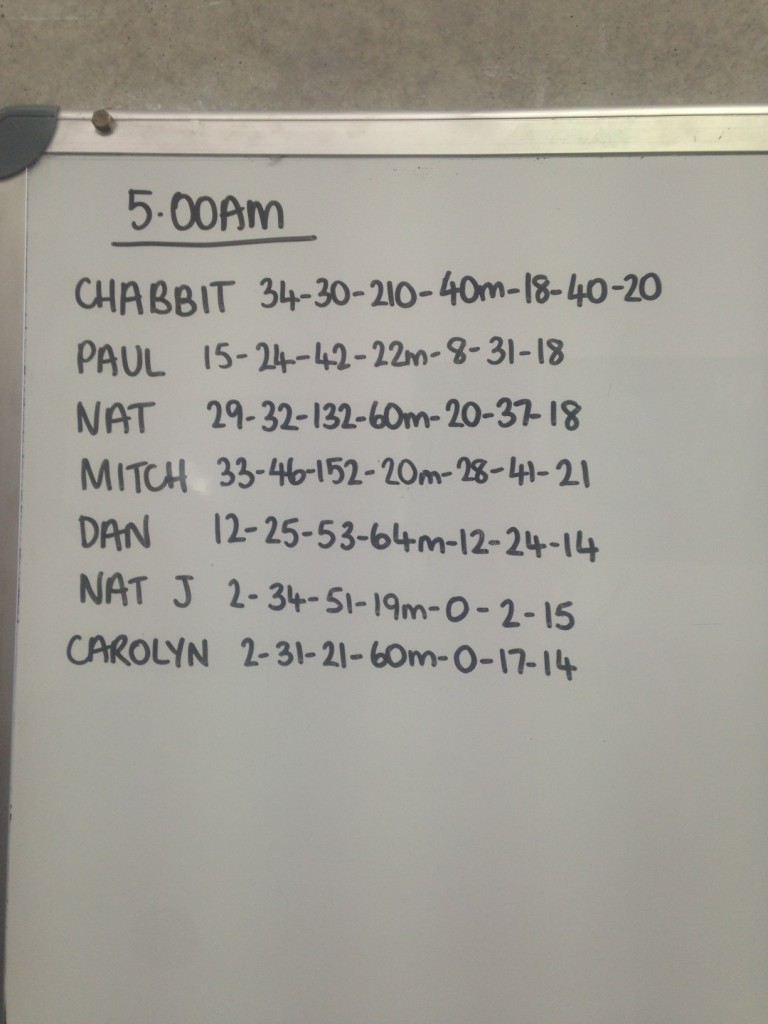 5.00AM
CHABBIT 34-30-210-40m-18-40-20
PAUL 15-24-42-22m-8-31-18
NAT 29-32-132-60m-20-37-18
MITCH 33-46-152-20m-28-41-21
DAN 12-25-53-64m-12-24-14
NAT J 2-34-51-19m-0-2-15
CAROLYN 2-31-21-60m-0-17-14